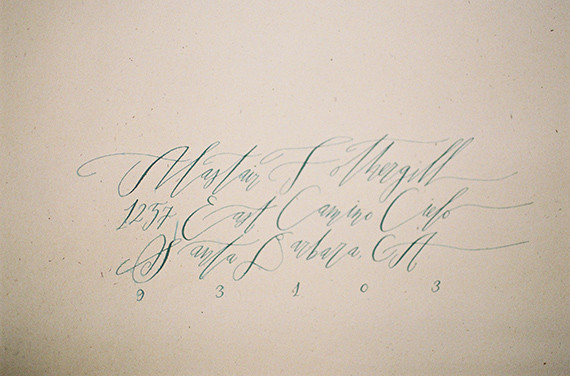 Alastair Fothergill
1257 East Camino Cielo
Santa Barbara, CA
93103